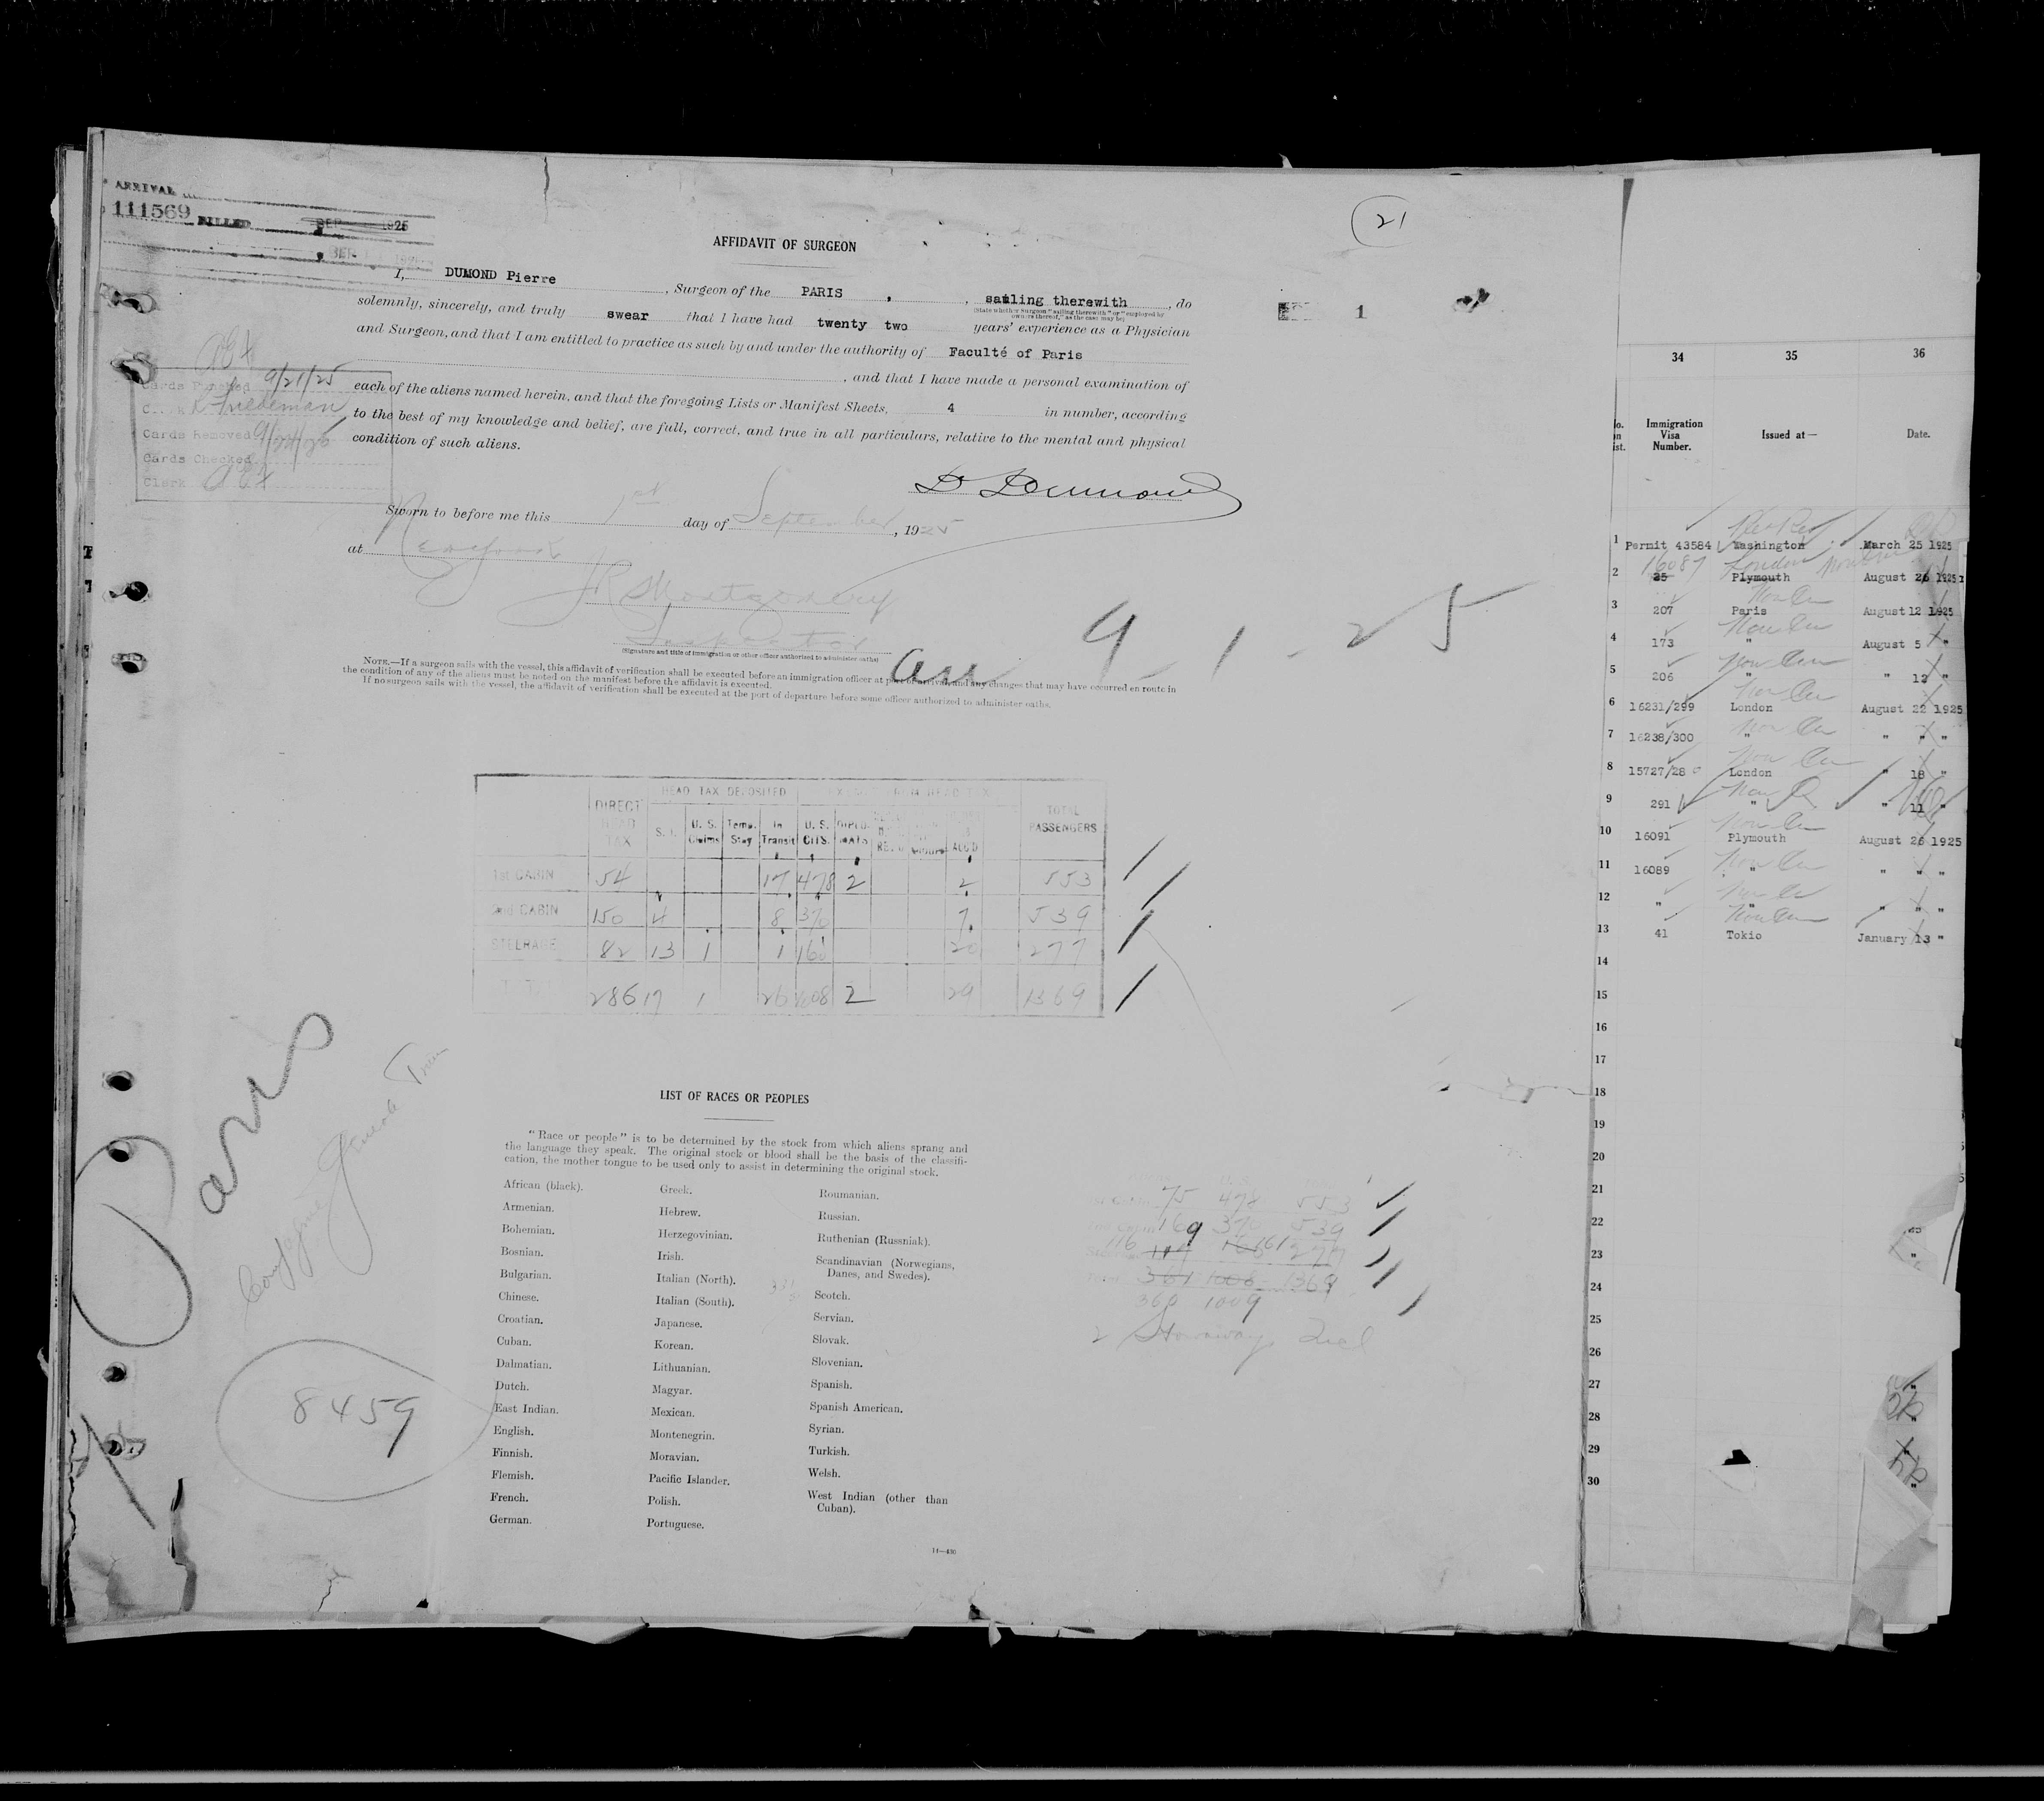 ARRIVAL
111569 FILLED SEP 1925
21
AFFIDAVIT OF SURGEON
I, DUMOND Pierre, Surgeon of the PARIS, sailing therewith, do
(State whether Surgeon "sailing therewith" or "employed by owners thereof," as the case may be)
solemnly, sincerely, and truly swear that I have had twenty two years' experience as a Physician
and Surgeon, and that I am entitled to practice as such by and under the authority of Faculté of Paris
, and that I have made a personal examination of
each of the aliens named herein, and that the foregoing Lists or Manifest Sheets, 4 in number, according
to the best of my knowledge and belief, are full, correct, and true in all particulars, relative to the mental and physical
condition of such aliens.
SEP 1
Cards Punched 9/21/25
Clerk Friedeman
Cards Removed
Cards Checked
Clerk
D Dumond
Sworn to before me this 1st day of September, 1925
at New York
JR Montgomery
Inspector
(Signature and title of immigration or other officer authorized to administer oaths)
arr 9-1-25
NOTE.—If a surgeon sails with the vessel, this affidavit of verification shall be executed before an immigration officer at port of arrival, and any changes that may have occurred en route in
the condition of any of the aliens must be noted on the manifest before the affidavit is executed.
If no surgeon sails with the vessel, the affidavit of verification shall be executed at the port of departure before some officer authorized to administer oaths.
HEAD TAX DEPOSITED EXEMPT FROM HEAD TAX
DIRECT HEAD TAX S. I. U. S. Claims Temp. Stay In Transit U. S. CITS. DIPLOMATS TOTAL PASSENGERS
1st CABIN 54 17 478 2 2 553
2nd CABIN 150 4 8 370 7 539
STEERAGE 82 13 1 1 160 20 277
TOTAL 286 17 1 26 1008 2 29 1369
Paris
Compagnie Generale Trans
8459
LIST OF RACES OR PEOPLES
"Race or people" is to be determined by the stock from which aliens sprang and
the language they speak. The original stock or blood shall be the basis of the classifi-
cation, the mother tongue to be used only to assist in determining the original stock.
African (black).
Armenian.
Bohemian.
Bosnian.
Bulgarian.
Chinese.
Croatian.
Cuban.
Dalmatian.
Dutch.
East Indian.
English.
Finnish.
Flemish.
French.
German.
Greek.
Hebrew.
Herzegovinian.
Irish.
Italian (North).
Italian (South).
Japanese.
Korean.
Lithuanian.
Magyar.
Mexican.
Montenegrin.
Moravian.
Pacific Islander.
Polish.
Portuguese.
Roumanian.
Russian.
Ruthenian (Russniak).
Scandinavian (Norwegians,
Danes, and Swedes).
Scotch.
Servian.
Slovak.
Slovenian.
Spanish.
Spanish American.
Syrian.
Turkish.
Welsh.
West Indian (other than
Cuban).
14—430
75 478 553
169 370 539
116 161 277
Total 361 1008 1369
360 1009
2 Stowaway
34 35 36
No. on list. Immigration Visa Number. Issued at— Date.
1 Permit 43584 Washington March 25 1925
2 16087 25 London Plymouth August 26 1925
3 207 Paris August 12 1925
4 173 " August 5 "
5 206 " " 12 "
6 16231/299 London August 22 1925
7 16238/300 " " " "
8 15727/28 London " 18 "
9 291 " " 11 "
10 16091 Plymouth August 26 1925
11 16089 " " " "
12 " " " " "
13 41 Tokio January 13 "
14
15
16
17
18
19
20
21
22
23
24
25
26
27
28
29
30